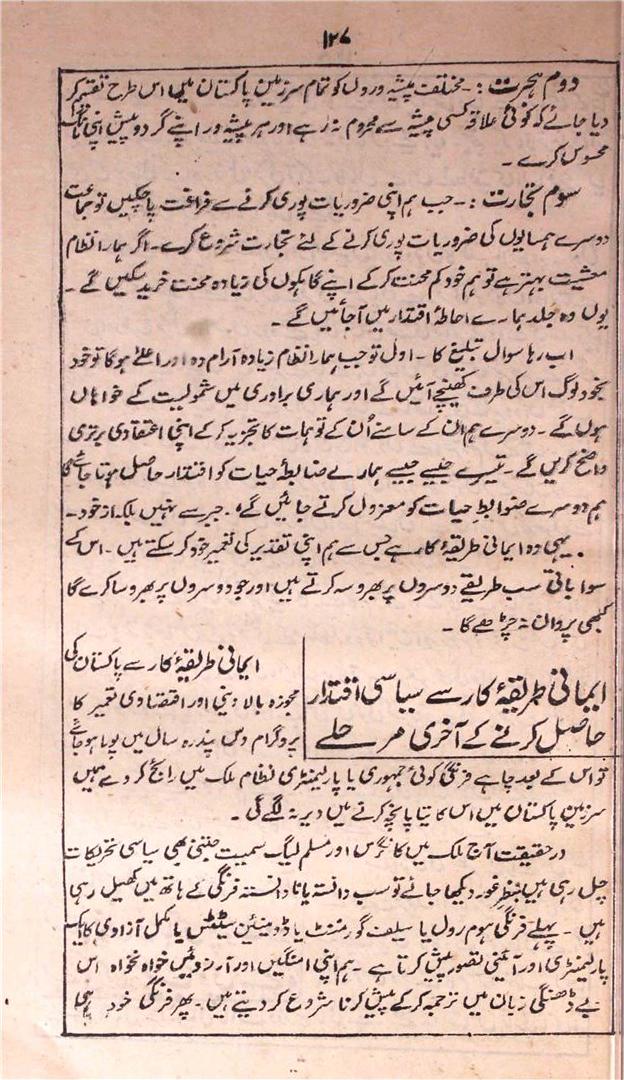 ۱۲۷
دوم ہجرت :۔ مختلف پیشہ وروں کو تمام سرزمین پاکستان میں اس طرح تقسیم کر
دیا جائے کہ کوئی علاقہ کسی پیشہ سے محروم نہ رہے اور ہر پیشہ ور اپنے گردو پیش اپنی مانگ
محسوس کرے ۔
سوم تجارت :۔ جب ہم اپنی ضروریات پوری کرنے سے فراغت پا چکیں تو جماعت
دوسرے ہمسایوں کی ضروریات پوری کرنے کے لئے تجارت شروع کرے۔ اگر ہمارا نظام
معشیت بہتر ہے تو ہم خود کم محنت کرکے اپنے گاہکوں کی زیادہ محنت خرید سکیں گے ۔
یوں وہ جلد ہمارے احاطۂ اقتدار میں آجائیں گے ۔
اب رہا سوال تبلیغ کا ۔ اول تو جب ہمارا نظام زیادہ آرام دہ اور اعلےٰ ہوگا تو خود
بخود لوگ اس کی طرف کھینچے آئیں گے اور ہماری برادری میں شمولیت کے خواہاں
ہوں گے ۔ دوسرے ہم ان کے سامنے اُن کے توہمات کا تجزیہ کرکے اپنی اعتقادی برتری
واضح کریں گے ۔ تیسرے جیسے جیسے ہمارے ضابطۂ حیات کو اقتدار حاصل ہوتا جائے گا
ہم دوسرے ضوابطِ حیات کو معزول کرتے جائیں گے۔ جبر سے نہیں بلکہ از خود ۔
یہی وہ ایمانی طریقۂ کار ہے جس سے ہم اپنی تقدیر کی تعمیر خود کر سکتے ہیں ۔ اس کے
سوا باقی سب طریقے دوسروں پر بھروسہ کرتے ہیں اور جو دوسروں پر بھروسا کرے گا
کبھی پروان نہ چڑھے گا ۔
ایمانی طریقۂ کار سے سیاسی اقتدار
حاصل کرنے کے آخری مرحلے
ایمانی طریقۂ کار سے پاکستان کی
مجوزہ بالا دینی اور اقتصادی تعمیر کا
پروگرام دس پندرہ سال میں پورا ہو جائے
تو اس کے بعد چاہے فرنگی کوئی جمہوری یا پارلیمنٹری نظام ملک میں رائج کر دے ہمیں
سرزمین پاکستان میں اس کا تیا پانچہ کرنے میں دیر نہ لگے گی ۔
درحقیقت آج ملک میں کانگرس اور مسلم لیگ سمیت جتنی بھی سیاسی تحریکات
چل رہی ہیں بنظرِ غور دیکھا جائے تو سب دانستہ یا نادانستہ فرنگی کے ہاتھ میں کھیل رہی
ہیں ۔ پہلے فرنگی ہوم رول یا سیلف گورنمنٹ یا ڈومینین سٹیٹس یا مکمل آزادی کا ایک
پارلیمنٹری اور آئینی تصور پیش کرتا ہے ۔ ہم اپنی امنگیں اور آرزوئیں خواہ نخواہ اس
بے ڈھنگی زبان میں ترجمہ کرکے پیش کرنا شروع کر دیتے ہیں ۔ پھر فرنگی خود ہی